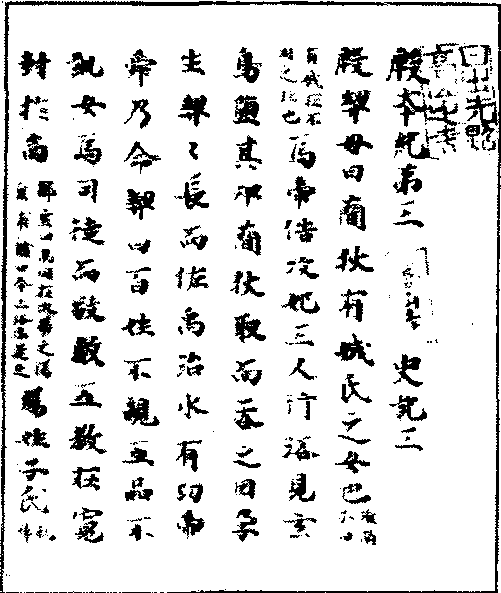 殷本紀第三 史記三
殷契母曰蕳狄有娀氏之女也
有娀 不 也 爲帝俈次妃三人行浴見玄
鳥墮其卵蕳狄取而吞之因孕
生契〻長而佐禹治水有功帝
舜乃命契曰百姓不親五品不
訓女爲司徒而敬敷五教在寬
封於商 賜姓子氏